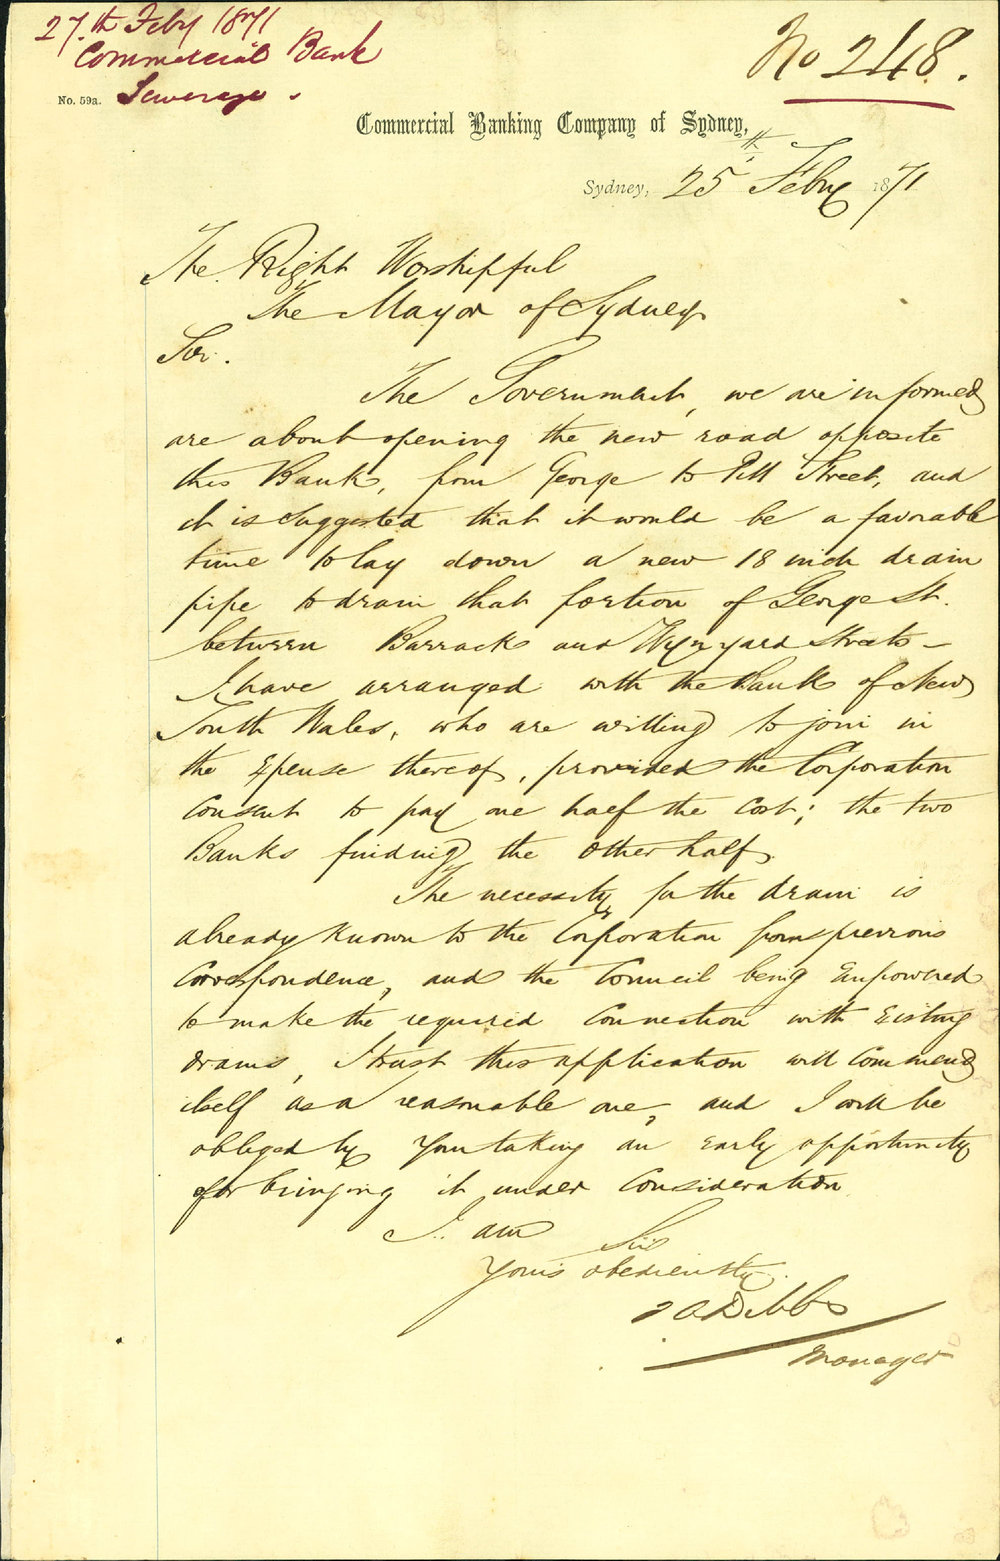 27.th Feby 1871
Commercial Bank
No. 59a. Sewerage.
No 248.
Commercial Banking Company of Sydney,
Sydney, 25th Feby 1871
The Right Worshipful
The Mayor of Sydney
Sir.
The Government, we are informed
are about opening the new road opposite
this Bank, from George to Pitt Street, and
it is suggested that it would be a favorable
time to lay down a new 18 inch drain
pipe to drain that portion of George St.
between Barrack and Wynyard Streets –
I have arranged with the Bank of New
South Wales, who are willing to join in
the Expense thereof, provided the Corporation
Consent to pay one half the Cost; the two
Banks finding the other half.
The necessity for the drain is
already known to the Corporation from previous
Correspondence, and the Council being Empowered
to make the required Connection with Existing
drains, I trust this application will Commend
itself as a reasonable one, and I will be
obliged by your taking an Early opportunity
for bringing it under Consideration
I am Sir
Yours obediently.
T A Dibbs
Manager